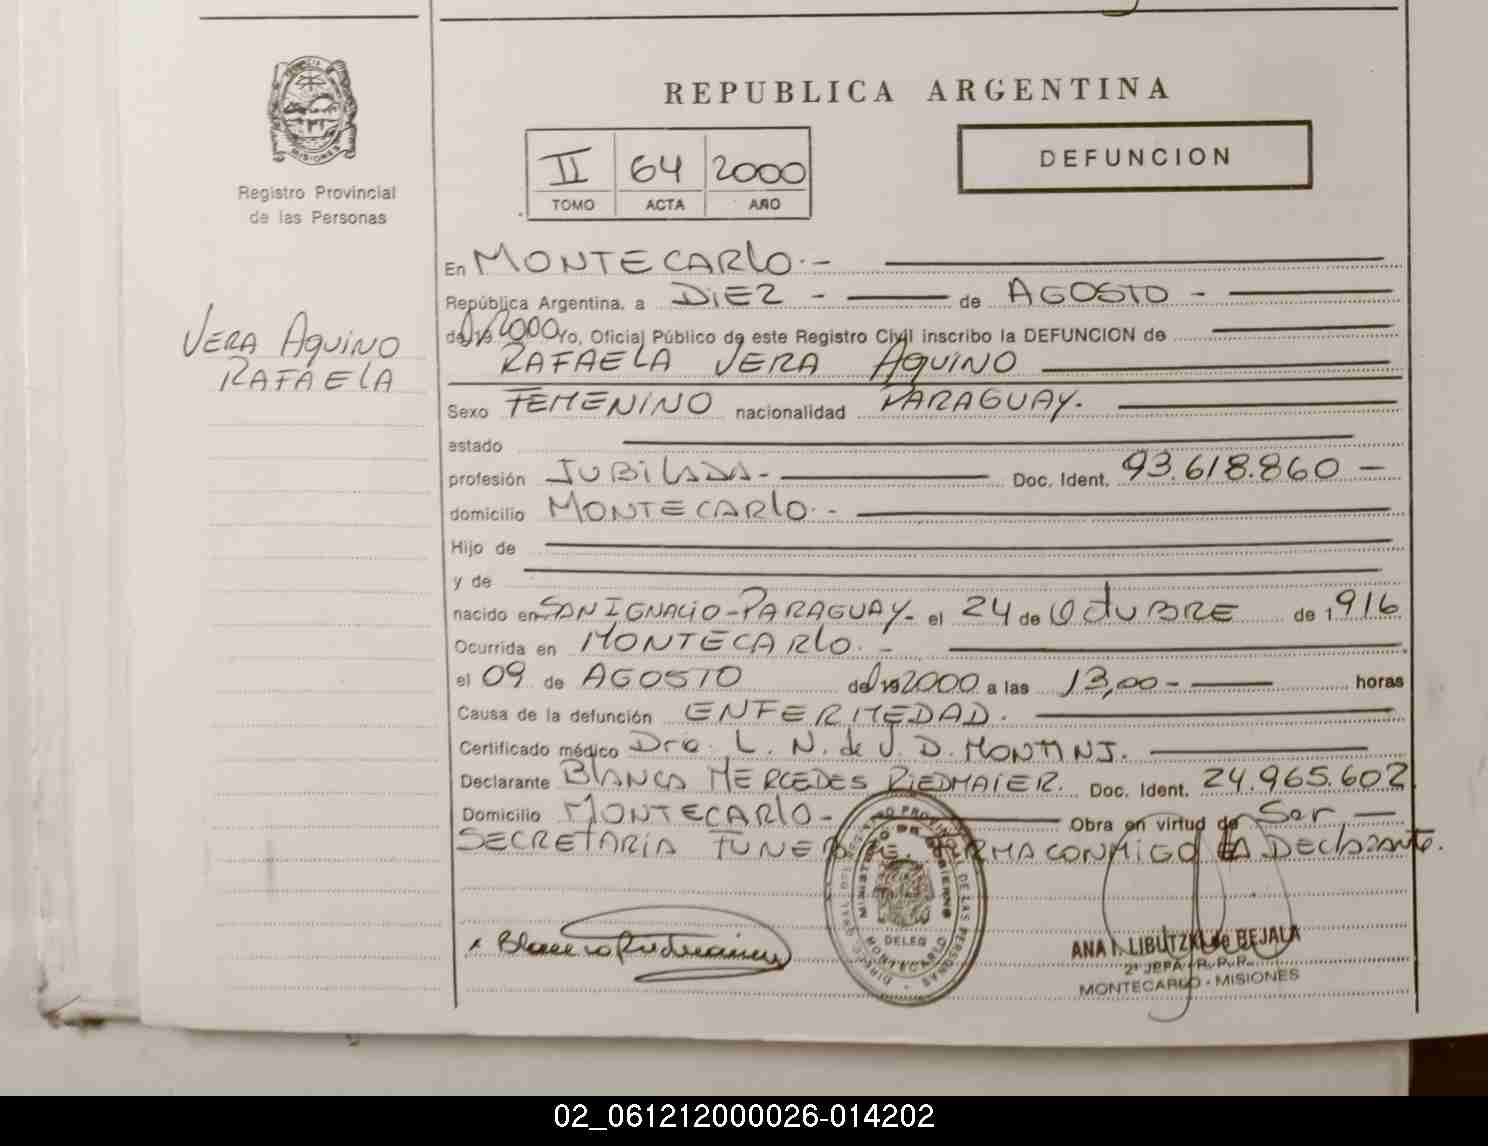 REPUBLICA ARGENTINA
PROVINCIA DE MISIONES
Registro Provincial
de las Personas
II 64 2000
TOMO ACTA AÑO
DEFUNCION
VERA AQUINO
RAFAELA
En MONTECARLO.-
República Argentina, a DIEZ - de AGOSTO -
del 2000 Yo, Oficial Público de este Registro Civil inscribo la DEFUNCION de
RAFAELA VERA AQUINO
Sexo FEMENINO nacionalidad PARAGUAY.
estado
profesión JUBILADA- Doc. Ident. 93.618.860 -
domicilio MONTECARLO.-
Hijo de
y de
nacido en SAN IGNACIO-PARAGUAY- el 24 de OctUBRE de 1916
Ocurrida en MONTECARLO.-
el 09 de AGOSTO del 2000 a las 13,00- horas
Causa de la defunción ENFERMEDAD.
Certificado médico Dra. L. N. de J. D. MONTINI.
Declarante BLANCA MERCEDES RIEDMAIER. Doc. Ident. 24.965.602
Domicilio MONTECARLO- Obra en virtud de Ser -
SECRETARIA FUNEB FIRMA CONMIGO LA Declarante.
DIREC. GRAL. DEL REGISTRO PROVINCIAL DE LAS PERSONAS
MINISTERIO DE GOBIERNO
DELEG
MONTECARLO
ANA I. LIBUTZKI de BEJALA
2ª JEFA - R.P.P.
MONTECARLO - MISIONES
02_061212000026-014202